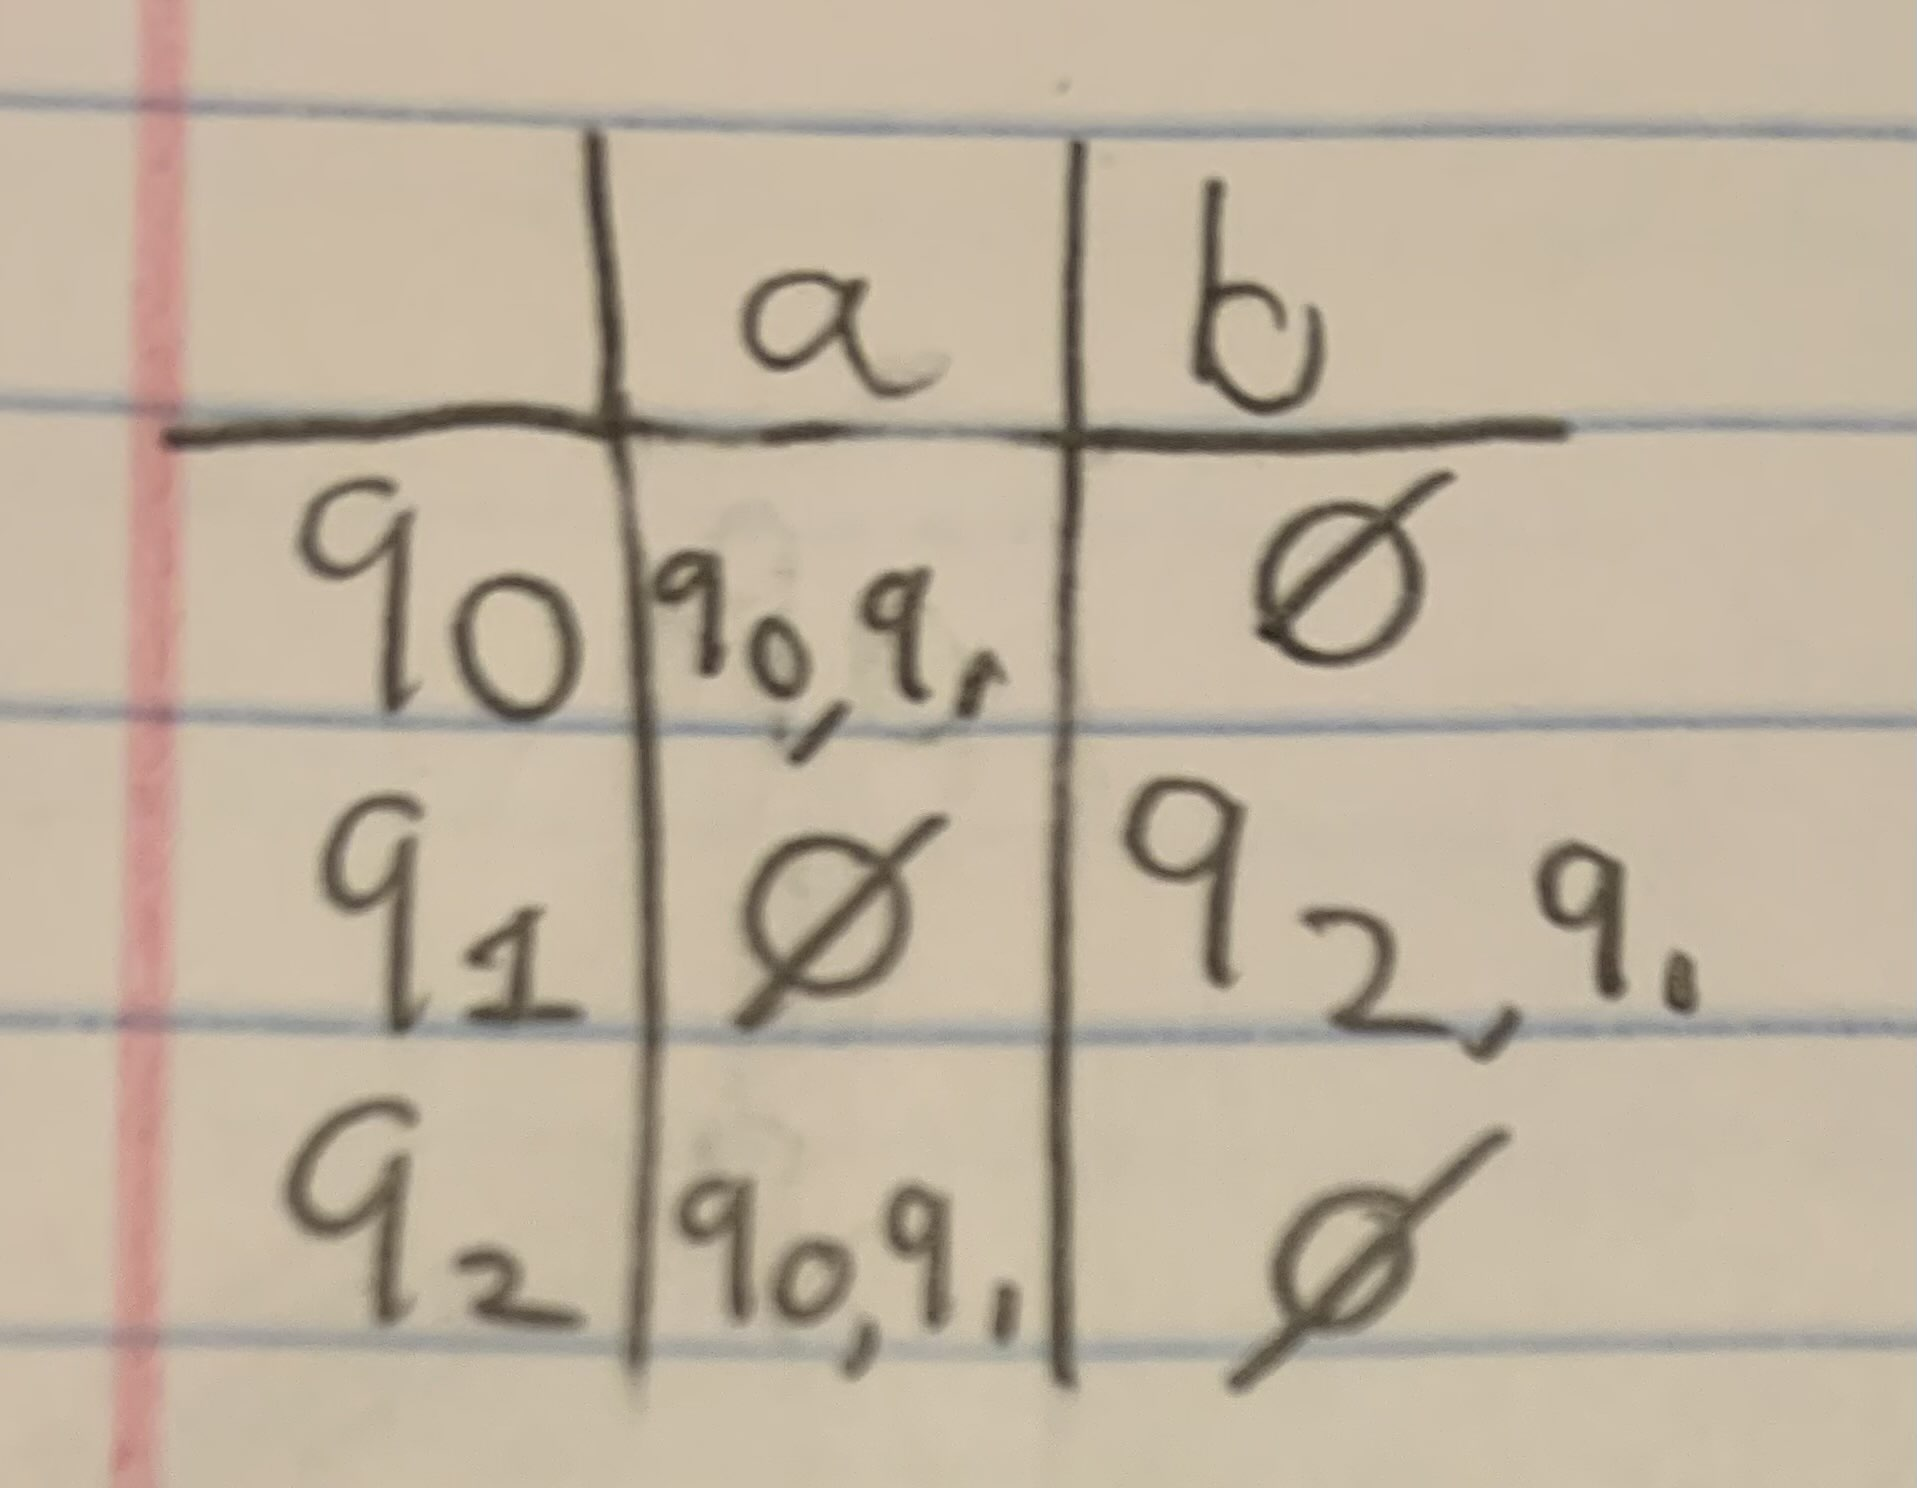 a b
q0 q0,q1 Ø
q1 Ø q2,q1
q2 q0,q1 Ø